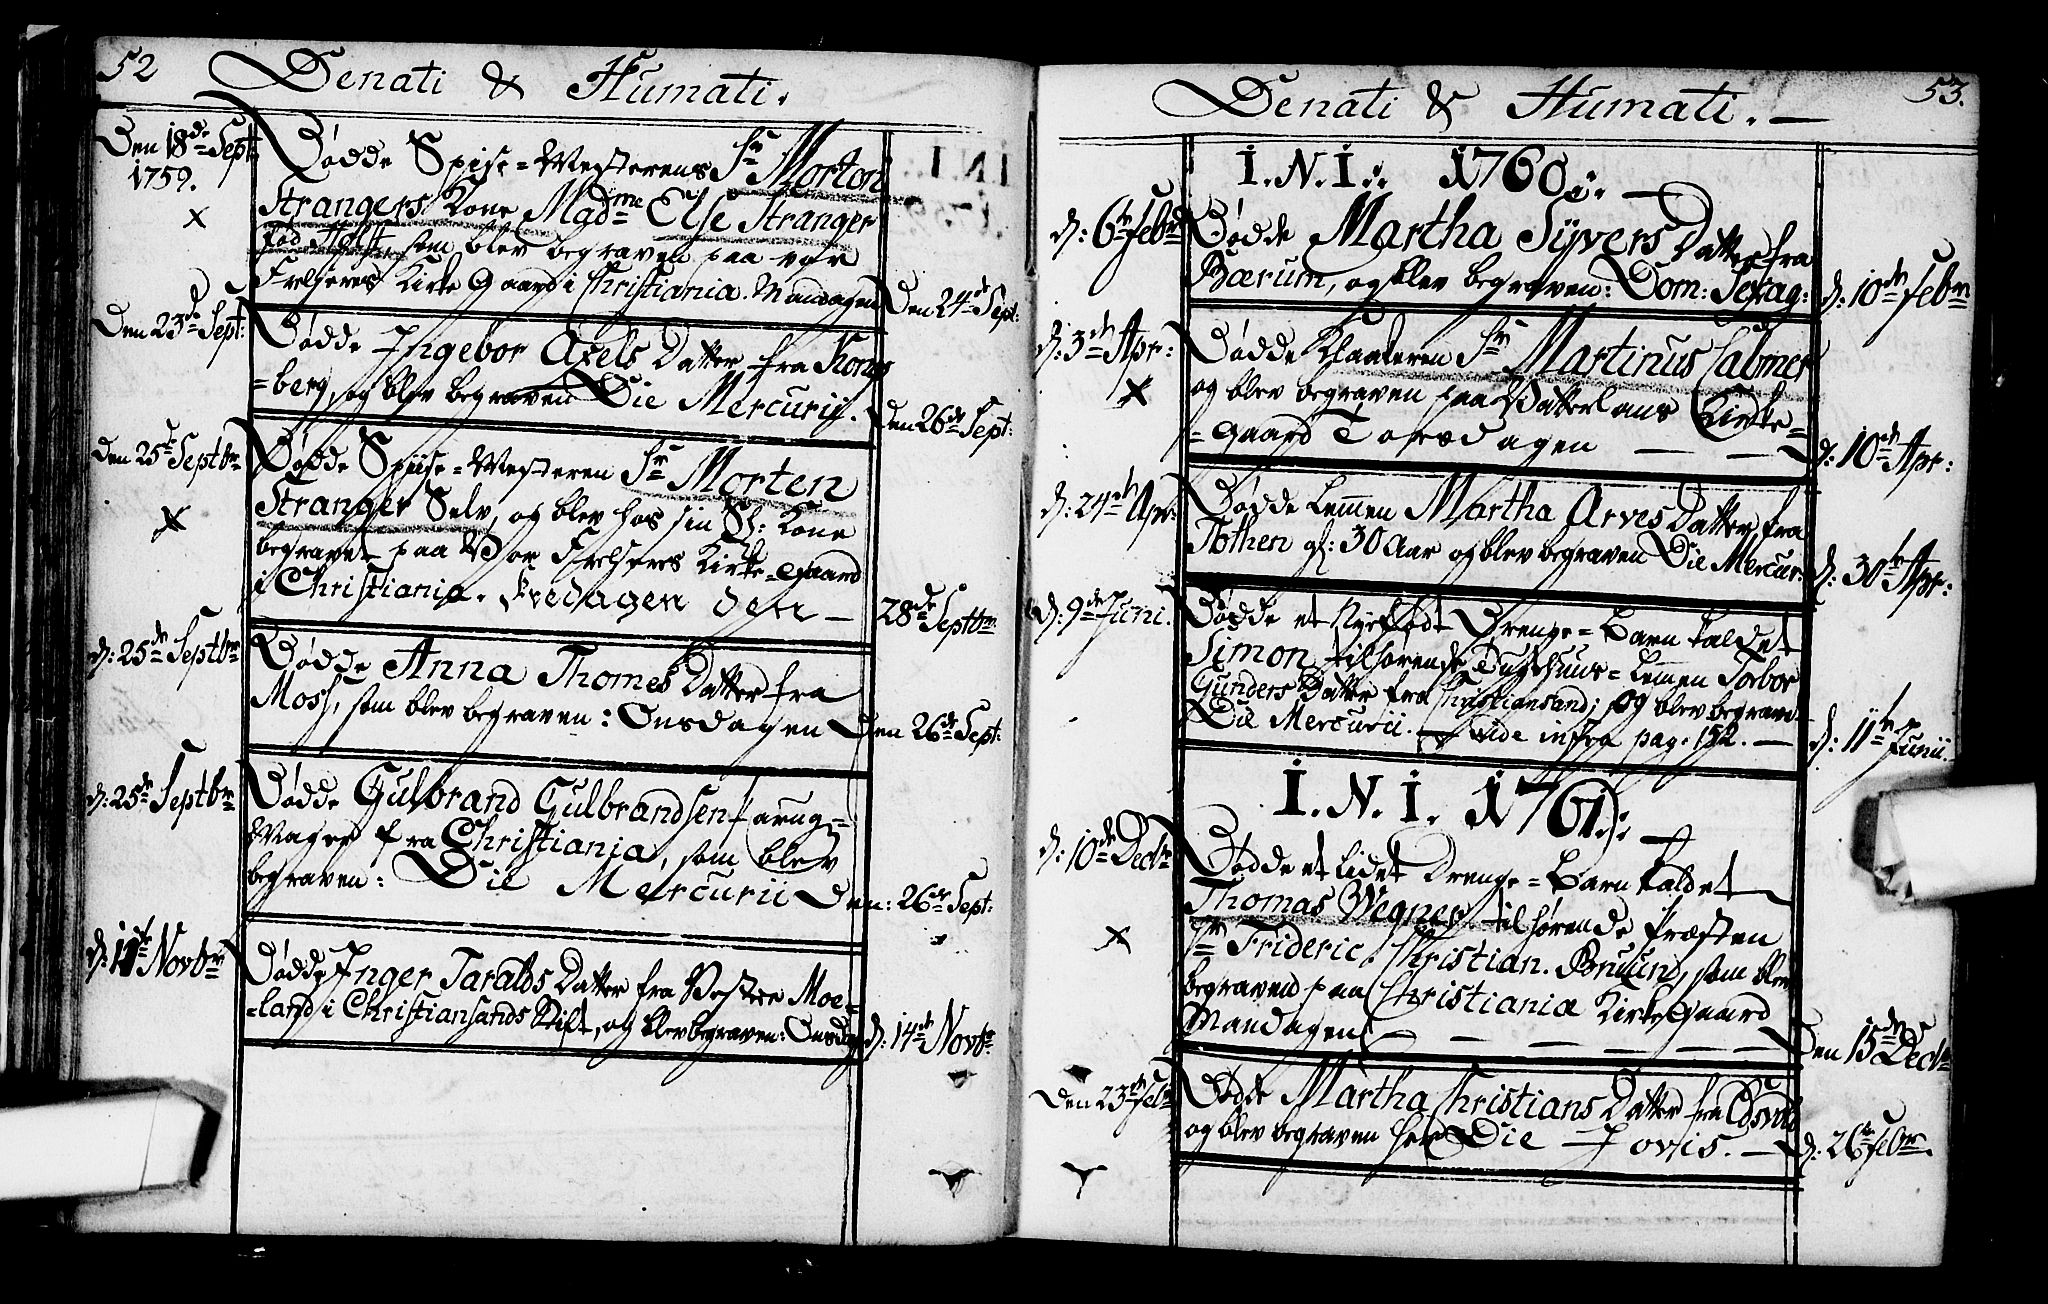 52 Denati & Humati.
Den 18de Sept: 1759.
Døde Spise-Mesterens Sr Morton
Strangers Kone Madme Else Stranger
fød Holst, som blev begraven paa vor
Frelseres Kirke Gaard i Christiania. Mandagen Den 24de Sept:
Den 23de Sept:
Døde Ingebor Axels Datter fra Kongs
=berg, og blev begraven Die Mercurii. Den 26de Sept:
Den 25de Septbr
Døde Spiise-Mesteren Sr Morten
Stranger Selv, og blev hos sin Sl: Kone
begravet paa Vor Frelseres Kirke-Gaard
i Christiania. Fredagen den — 28de Septbr
d: 25de Septbr
Døde Anna Thomes Datter fra
Moss, som blev begraven: Onsdagen Den 26de Sept:
d: 25de Septbr
Døde Gulbrand Gulbrandsen Paruq=
Mager fra Christiania, som blev
begraven: Die Mercurii Den: 26de Sept:
d: 11te Novbr
Døde Inger Taralds Datter fra Vestre Moe=
=land i Christiansands Stift, og blev begraven: Onsdag d: 14de Novbr
Denati & Humati. — 53.
I.N.I.: 1760.: —
d: 6te Febr
Døde Martha Syvers Datter fra
Bærum, og blev begraven: Dom: Septuag: d: 10de Febr
d: 3de Apr:
Døde Klokkeren Sr Martinus Calmer
og blev begraven paa Vatterlans Kirke=
=Gaard Torsdagen — — d: 10de Apr:
d: 24de Apr:
Døde Lemmen Martha Arves Datter, fra
Tothen gl: 30 Aar og blev begraven Die Mercur: d: 30te Apr:
d: 9de Juni.
Døde et Nyefødt Drenge-Barn kaldet
Simon tilhørende Tugthuus-Lemmen Torbor
Gunders Datter fra Christiansand; og blev begraven
Die Mercurii. — vide infra pag. 152. — d: 11te Junii.
I.N.I. 1761.: —
d: 10de Decbr
Døde et lidet Drenge-Barn kaldet
Thomas Wegner tilhørende Præsten
Hr Frideric Christian. Bruun, som blev
begraven paa Christianiæ Kirke Gaard
Mandagen — — — — — Den 15de Decbr
Den 23de Febr
Døde Martha Christians Datter fra Edsvold
og blev begraven her Die Jovis. — d: 26de Febr.